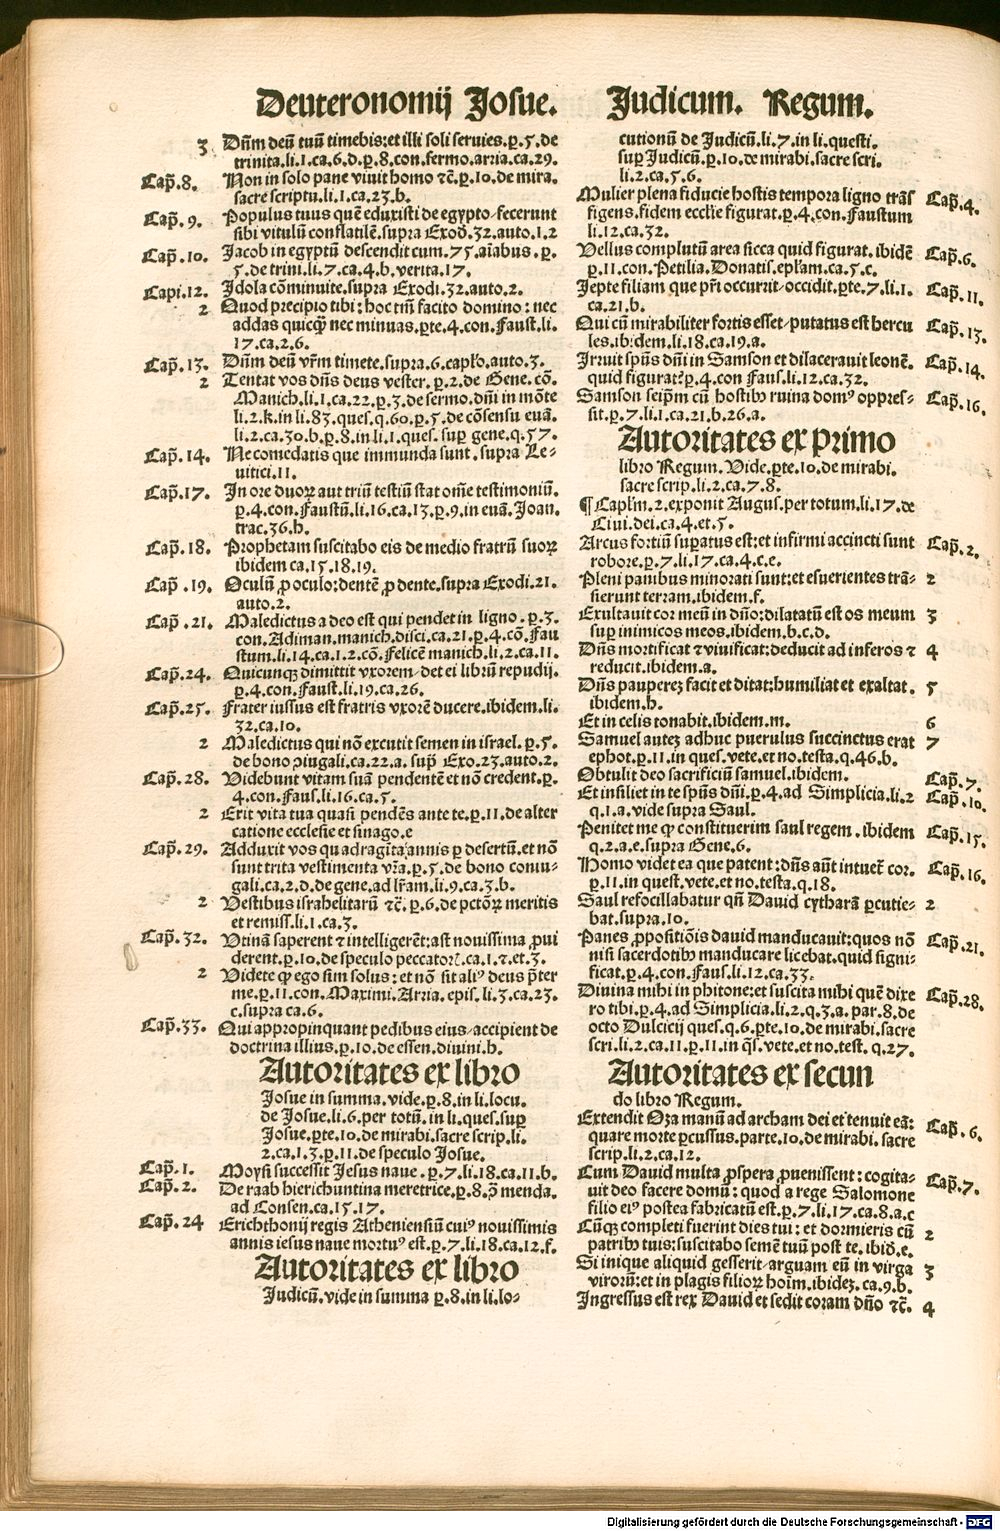 Deuteronomij Josue. Judicum. Regum.
3 Dn̄m deū tuū timebis:et illi soli seruies.p̲.5.de
trinita.li.1.ca.6.d.p̲.8.con.sermo.aria.ca.29.
Cap̄.8. Non in solo pane viuit homo ⁊c̄.p̲.10.de mira.
sacre scriptu.li.1.ca.23.b.
Cap̄.9. Populus tuus quē eduxisti de egypto/fecerunt
sibi vitulū conflatilē.supra Exod̄.32.auto.1.2
Cap̄.10. Jacob in egyptū descendit cum.75.aīabus.p̲.
5.de trini.li.7.ca.4.b.verita.17.
Capi.12. Idola cōminuite.supra Exodi.32.auto.2.
2 Quod precipio tibi:hoc tm̄ facito domino:nec
addas quicq̄ȝ nec minuas.p̲te.4.con.Faust.li.
17.ca.2.6.
Cap̄.13. Dn̄m deū vr̄m timete.supra.6.capl̄o.auto.3.
2 Tentat vos dn̄s deus vester.p̲.2.de Gene.cō.
Manich.li.1.ca.22.p̲.3.de sermo.dn̄i in mōte
li.2.k.in li.83.ques.q.60.p̲.5.de cōsensu euā.
li.2.ca.30.b.p̲.8.in li.1.ques.sup̲ gene.q.57.
Cap̄.14. Ne comedatis que immunda sunt.supra Le⸗
uitici.11.
Cap̄.17. In ore duoꝝ aut triū testiū stat om̄e testimoniū.
p̲.4.con.Faustū.li.16.ca.13.p̲.9.in euā.Joan.
trac.36.h.
Cap̄.18. Prophetam suscitabo eis de medio fratrū suoꝝ
ibidem ca.15.18.19.
Cap̄.19. Oculū ꝓ oculo:dentē ꝓ dente.supra Exodi.21.
auto.2.
Cap̄.21. Maledictus a deo est qui pendet in ligno.p̲.3.
con.Adiman.manich.disci.ca.21.p̲.4.cō.Fau
stum.li.14.ca.1.2.cō.Felicē manich.li.2.ca.11.
Cap̄.24. Quicunqȝ dimittit vxorem/det ei librū repudij.
p̲.4.con.Faust.li.19.ca.26.
Cap̄.25. Frater iussus est fratris vxorē ducere.ibidem.li.
32.ca.10.
2 Maledictus qui nō excutit semen in israel.p̲.5.
de bono ꝯiugali.ca.22.a.sup̄ Exo.23.auto.2.
Cap̄.28. Videbunt vitam suā pendentē et nō credent.p̲.
4.con.Faus.li.16.ca.5.
2 Erit vita tua quasi pendēs ante te.p̲.11.de alter
catione ecclesie et sinago.e
Cap̄.29. Adduxit vos quadragīta annis p̲ desertū.et nō
sunt trita vestimenta vr̄a.p̲.5.de bono coniu⸗
gali.ca.2.d.de gene.ad lr̄am.li.9.ca.3.b.
2 Vestibus israhelitarū ⁊c̄.p̲.6.de pctōꝝ meritis
et remiss.li.1.ca.3.
Cap̄.32. Vtinā saperent ⁊ intelligerēt:ast nouissima ꝓui
derent.p̲.10.de speculo peccator̄.ca.1.⁊.et.3.
2 Videte ꝙ ego sim solus:et nō sit aliꝰ deus p̄ter
me.p̲.11.con.Maximi.Arria.epis.li.3.ca.23.
c.supra ca.6.
Cap̄.33. Qui appropinquant pedibus eius/accipient de
doctrina illius.p̲.10.de essen.diuini.h.
Autoritates ex libro
Josue in summa.vide.p̲.8.in li.locu.
de Josue.li.6.per totū.in li.ques.sup̲
Josue.p̲te.10.de mirabi.sacre scrip.li.
2.ca.1.3.p̲.11.de speculo Josue.
Cap̄.1. Moysi successit Jesus naue.p̲.7.li.18.ca.11.b.
Cap̄.2. De raab hierichuntina meretrice.p̲.8.ꝯ̄ menda.
ad Consen.ca.15.17.
Cap̄.24 Erichthonij regis Atheniensiū cuiꝰ nouissimis
annis iesus naue mortuꝰ est.p̲.7.li.18.ca.12.f.
Autoritates ex libro
Judicū.vide in summa p̲.8.in li.lo⸗
cutionū de Judicū.li.7.in li.questi.
sup̲ Judicū.p̲.10.de mirabi.sacre scri.
li.2.ca.5.6.
Mulier plena fiducie hostis tempora ligno trās Cap̄.4.
figens.fidem eccl̄ie figurat.p̲.4.con.Faustum
li.12.ca.32.
Vellus complutū area sicca quid figurat.ibidē Cap̄.6.
p̲.11.con.Petilia.Donatis.epl̄am.ca.5.c.
Jepte filiam que pr̄i occurrit/occidit.p̲te.7.li.1. Cap̄.11.
ca.21.b.
Qui cū mirabiliter fortis esset/putatus est hercu Cap̄.13.
les.ibidem.li.18.ca.19.a.
Irruit spūs dn̄i in Samson et dilacerauit leonē. Cap̄.14.
quid figurat?p̲.4.con Faus.li.12.ca.32.
Samson seip̄m cū hostibꝰ ruina domꝰ oppres⸗ Cap̄.16.
sit.p̲.7.li.1.ca.21.b.26.a.
Autoritates ex primo
libro Regum.Vide.p̲te.10.de mirabi.
sacre scrip.li.2.ca.7.8.
¶ Capl̄m.2.exponit Augus.per totum.li.17.de
Ciui.dei.ca.4.et.5.
Arcus fortiū sup̲atus est:et infirmi accincti sunt Cap̄.2.
robore.p̲.7.li.17.ca.4.c.e.
Pleni panibus minorati sunt:et esuerientes trā⸗ 2
sierunt terram.ibidem.f.
Exultauit cor meū in dn̄o:dilatatū est os meum 3
sup̲ inimicos meos.ibidem.b.c.d.
Dn̄s mortificat ⁊ viuificat:deducit ad inferos ⁊ 4
reducit.ibidem.a.
Dn̄s paupereȝ facit et ditat:humiliat et exaltat. 5
ibidem.h.
Et in celis tonabit.ibidem.m. 6
Samuel auteȝ adhuc puerulus succinctus erat 7
ephot.p̲.11.in ques.vete.et no.testa.q.46.b.
Obtulit deo sacrificiū samuel.ibidem. Cap̄.7.
Et insiliet in te spūs dn̄i.p̲.4.ad Simplicia.li.2 Cap̄.10.
q.1.a.vide supra Saul.
Penitet me ꝙ constituerim saul regem.ibidem Cap̄.15.
q.2.a.e.supra Gene.6.
Homo videt ea que patent:dn̄s aūt intuet̄ cor. Cap̄.16.
p̲.11.in quest.vete.et no.testa.q.18.
Saul refocillabatur qn̄ Dauid cytharā p̲cutie⸗ 2
bat.supra.10.
Panes ꝓpositiōis dauid manducauit:quos nō Cap̄.21.
nisi sacerdotibꝰ manducare licebat.quid signi⸗
ficat.p̲.4.con.Faus.li.12.ca.33.
Diuina mihi in phitone:et suscita mihi quē dixe Cap̄.28.
ro tibi.p̲.4.ad Simplicia.li.2.q.3.a.par.8.de
octo Dulcicij ques.q.6.p̲te.10.de mirabi.sacre
scri.li.2.ca.11.p̲.11.in q̄s.vete.et no.test.q.27.
Autoritates ex secun
do libro Regum.
Extendit Oza manū ad archam dei et tenuit eā: Cap̄.6.
quare morte p̲cussus.parte.10.de mirabi.sacre
scrip.li.2.ca.12.
Cum Dauid multa ꝓspera ꝓuenissent:cogita⸗ Cap̄.7.
uit deo facere domū:quod a rege Salomone
filio eiꝰ postea fabricatū est.p̲.7.li.17.ca.8.a.c
Cūqȝ completi fuerint dies tui:et dormieris cū 2
patribꝰ tuis:suscitabo semē tuū post te.ibid̄.e.
Si inique aliquid gesserit/arguam eū in virga 3
virorū:et in plagis filioꝝ hoīm.ibideȝ.ca.9.b.
Ingressus est rex Dauid et sedit coram dn̄o ⁊c̄. 4
Digitalisierung gefördert durch die Deutsche Forschungsgemeinschaft - DFG